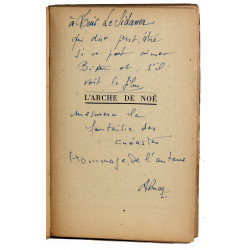 à Louis Le Sidaner
qui dira peut être
si ce peut aimer
et s'il
voit le film
L'ARCHE DE NOÉ
mesurera la
fantaisie des
cinéastes
Hommage de l'auteur